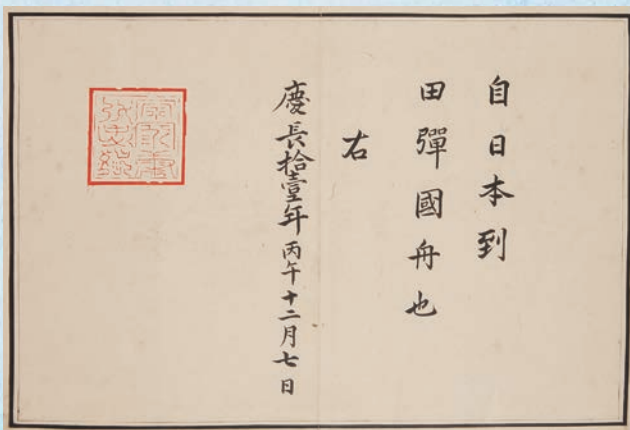 自日本到
田彈國舟也
右
慶長拾壹年丙午十二月七日